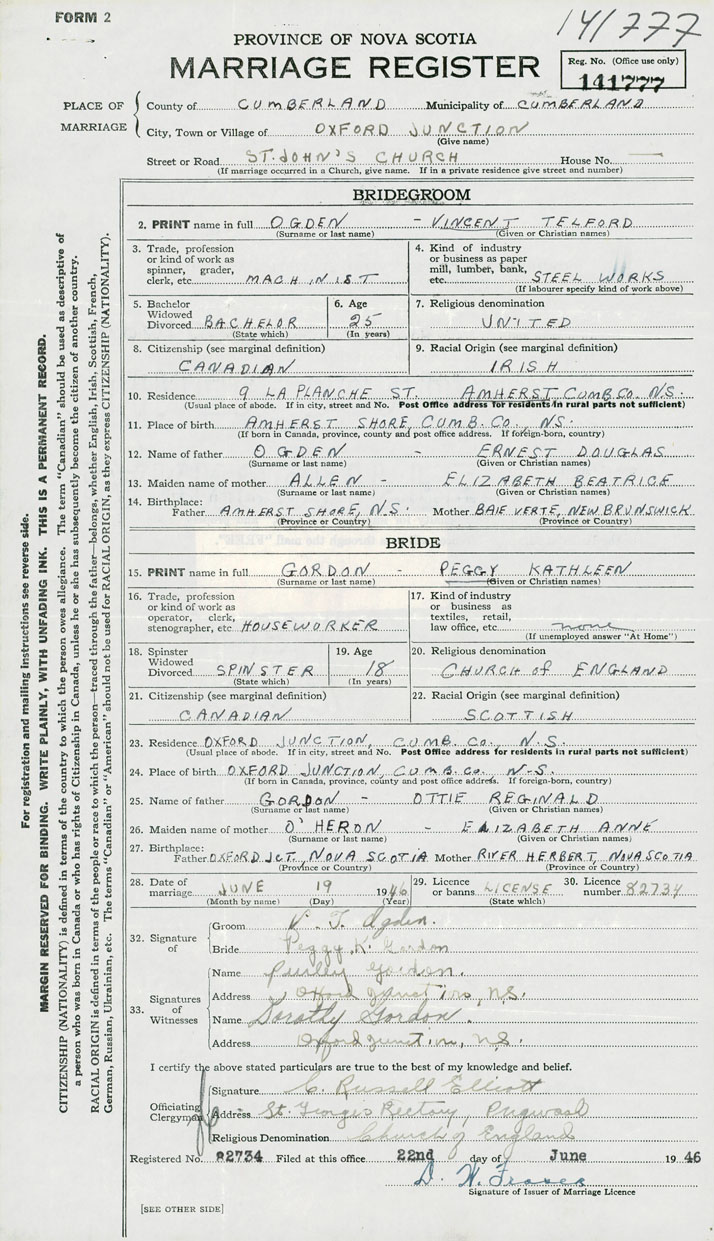 FORM 2
141777
PROVINCE OF NOVA SCOTIA
MARRIAGE REGISTER
Reg. No. (Office use only)
141777
PLACE OF MARRIAGE
County of CUMBERLAND Municipality of CUMBERLAND
City, Town or Village of OXFORD JUNCTION
(Give name)
Street or Road ST. JOHN'S CHURCH House No. —
(If marriage occurred in a Church, give name. If in a private residence give street and number)
BRIDEGROOM
2. PRINT name in full OGDEN - VINCENT TELFORD
(Surname or last name) (Given or Christian names)
3. Trade, profession or kind of work as spinner, grader, clerk, etc. MACHINIST
4. Kind of industry or business as paper mill, lumber, bank, etc. STEEL WORKS
(If labourer specify kind of work above)
5. Bachelor Widowed Divorced BACHELOR
(State which)
6. Age 25
(In years)
7. Religious denomination
UNITED
8. Citizenship (see marginal definition)
CANADIAN
9. Racial Origin (see marginal definition)
IRISH
10. Residence 9 LA PLANCHE ST. AMHERST CUMB. CO. N.S.
(Usual place of abode. If in city, street and No. Post Office address for residents in rural parts not sufficient)
11. Place of birth AMHERST SHORE, CUMB. CO., N.S.
(If born in Canada, province, county and post office address. If foreign-born, country)
12. Name of father OGDEN - ERNEST DOUGLAS
(Surname or last name) (Given or Christian names)
13. Maiden name of mother ALLEN - ELIZABETH BEATRICE
(Surname or last name) (Given or Christian names)
14. Birthplace:
Father AMHERST SHORE, N.S. Mother BAIE VERTE, NEW BRUNSWICK
(Province or Country) (Province or Country)
BRIDE
15. PRINT name in full GORDON - PEGGY KATHLEEN
(Surname or last name) (Given or Christian names)
16. Trade, profession or kind of work as operator, clerk, stenographer, etc. HOUSEWORKER
17. Kind of industry or business as textiles, retail, law office, etc. none
(If unemployed answer "At Home")
18. Spinster Widowed Divorced SPINSTER
(State which)
19. Age 18
(In years)
20. Religious denomination
CHURCH of ENGLAND
21. Citizenship (see marginal definition)
CANADIAN
22. Racial Origin (see marginal definition)
SCOTTISH
23. Residence OXFORD JUNCTION, CUMB. CO., N.S.
(Usual place of abode. If in city, street and No. Post Office address for residents in rural parts not sufficient)
24. Place of birth OXFORD JUNCTION, CUMB. CO., N.S.
(If born in Canada, province, county and post office address. If foreign-born, country)
25. Name of father GORDON - OTTIE REGINALD
(Surname or last name) (Given or Christian names)
26. Maiden name of mother O'HERON - ELIZABETH ANNE
(Surname or last name) (Given or Christian names)
27. Birthplace:
Father OXFORD JCT., NOVA SCOTIA Mother RIVER HERBERT, NOVA SCOTIA
(Province or Country) (Province or Country)
28. Date of marriage JUNE 19 1946
(Month by name) (Day) (Year)
29. Licence or banns LICENSE
(State which)
30. Licence number 82734
32. Signature of
Groom V. T. Ogden.
Bride Peggy K. Gordon
33. Signatures of Witnesses
Name Gordon.
Address Oxford Junction, N.S.
Name Dorothy Gordon.
Address Oxford Junction, N.S.
I certify the above stated particulars are true to the best of my knowledge and belief.
Officiating Clergyman
Signature C. Russell Elliott
Address St. George's Rectory, Pugwash
Religious Denomination Church of England
Registered No. 82734 Filed at this office 22nd day of June 1946
D. W. Fraser
Signature of Issuer of Marriage Licence
[SEE OTHER SIDE]
For registration and mailing instructions see reverse side.
MARGIN RESERVED FOR BINDING. WRITE PLAINLY, WITH UNFADING INK. THIS IS A PERMANENT RECORD.
CITIZENSHIP (NATIONALITY) is defined in terms of the country to which the person owes allegiance. The term "Canadian" should be used as descriptive of
a person who was born in Canada or who has rights of Citizenship in Canada, unless he or she has subsequently become the citizen of another country.
RACIAL ORIGIN is defined in terms of the people or race to which the person—traced through the father—belongs, whether English, Irish, Scottish, French,
German, Russian, Ukrainian, etc. The terms "Canadian" or "American" should not be used for RACIAL ORIGIN, as they express CITIZENSHIP (NATIONALITY).